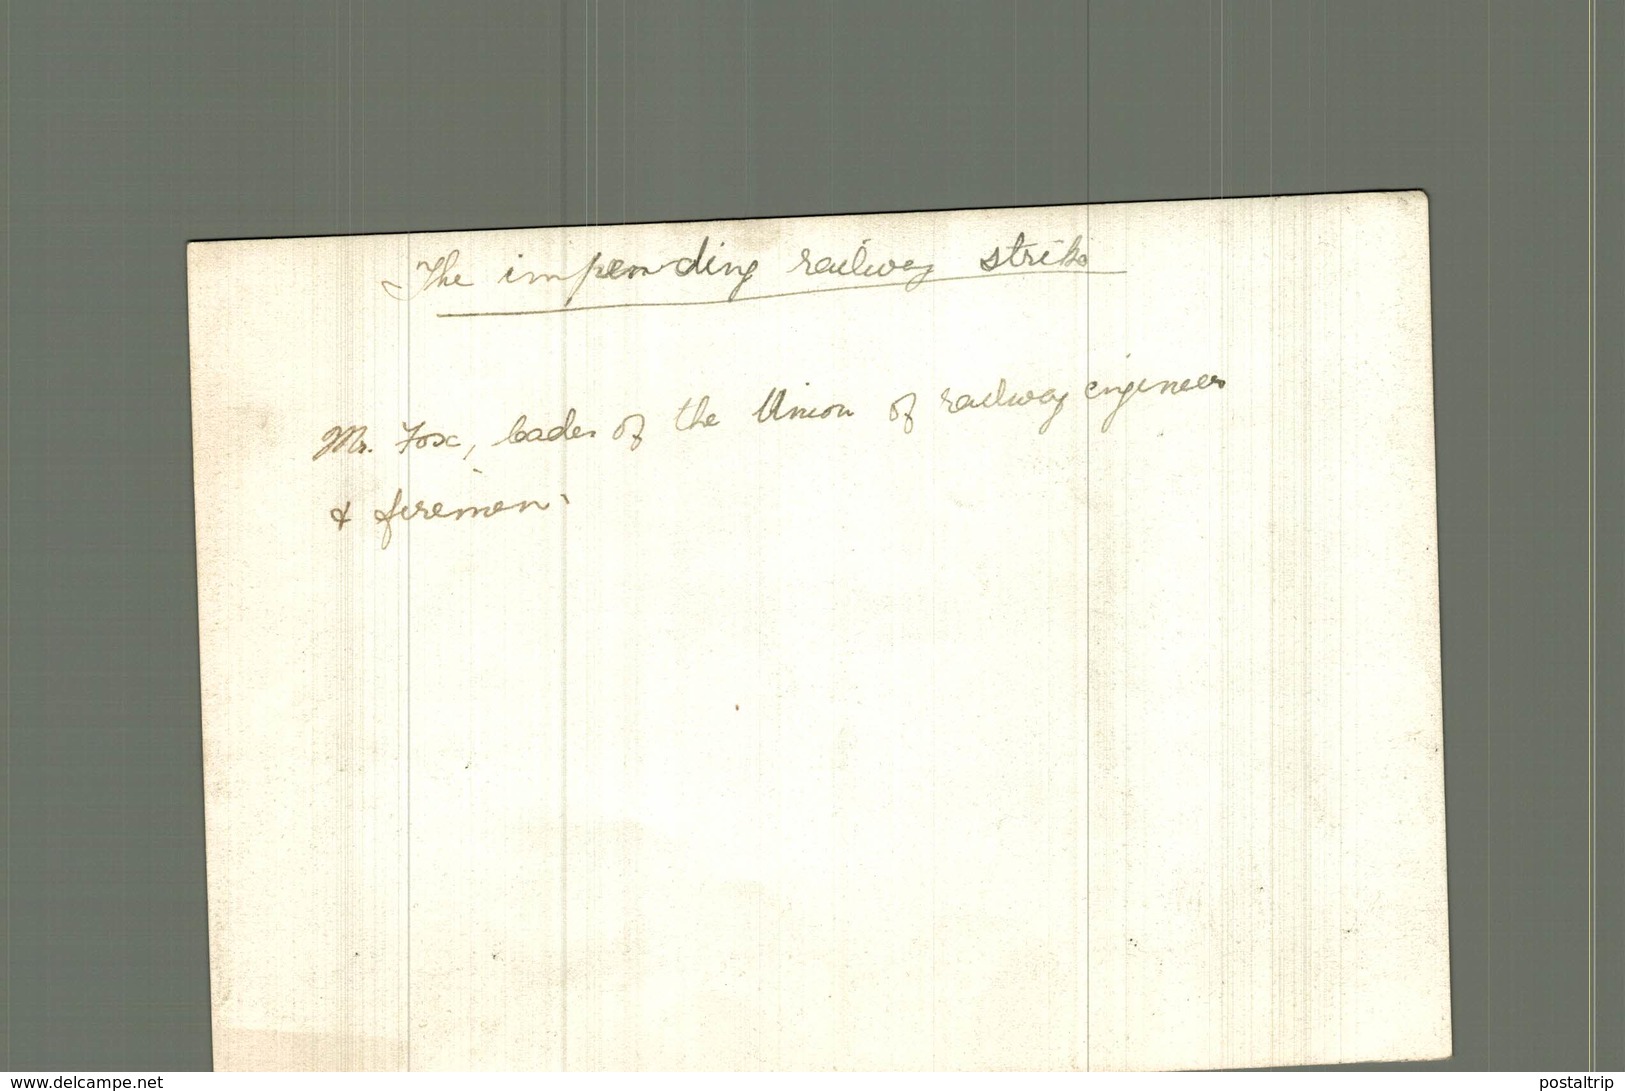 The impending railway strike
Mr. Fox, leader of the Union of railway engineers
& firemen.
www.delcampe.net
postaltrip